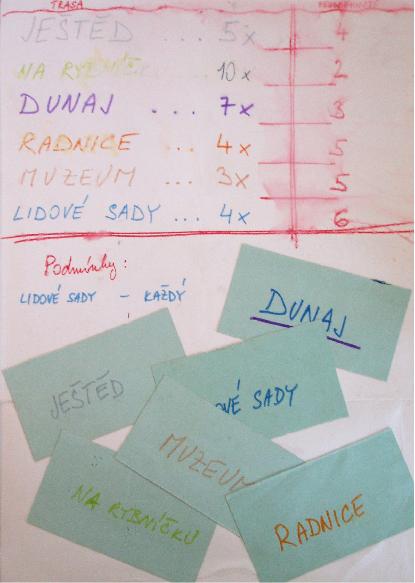 TRASA
JEŠTĚD ... 5x 4
NA RYBNÍČKU 10x 2
DUNAJ ... 7x 3
RADNICE ... 4x 5
MUZEUM ... 3x 5
LIDOVÉ SADY ... 4x 6
Podmínky:
LIDOVÉ SADY - KAŽDÝ
DUNAJ
JEŠTĚD
OVÉ SADY
MUZEUM
NA RYBNÍČKU
RADNICE